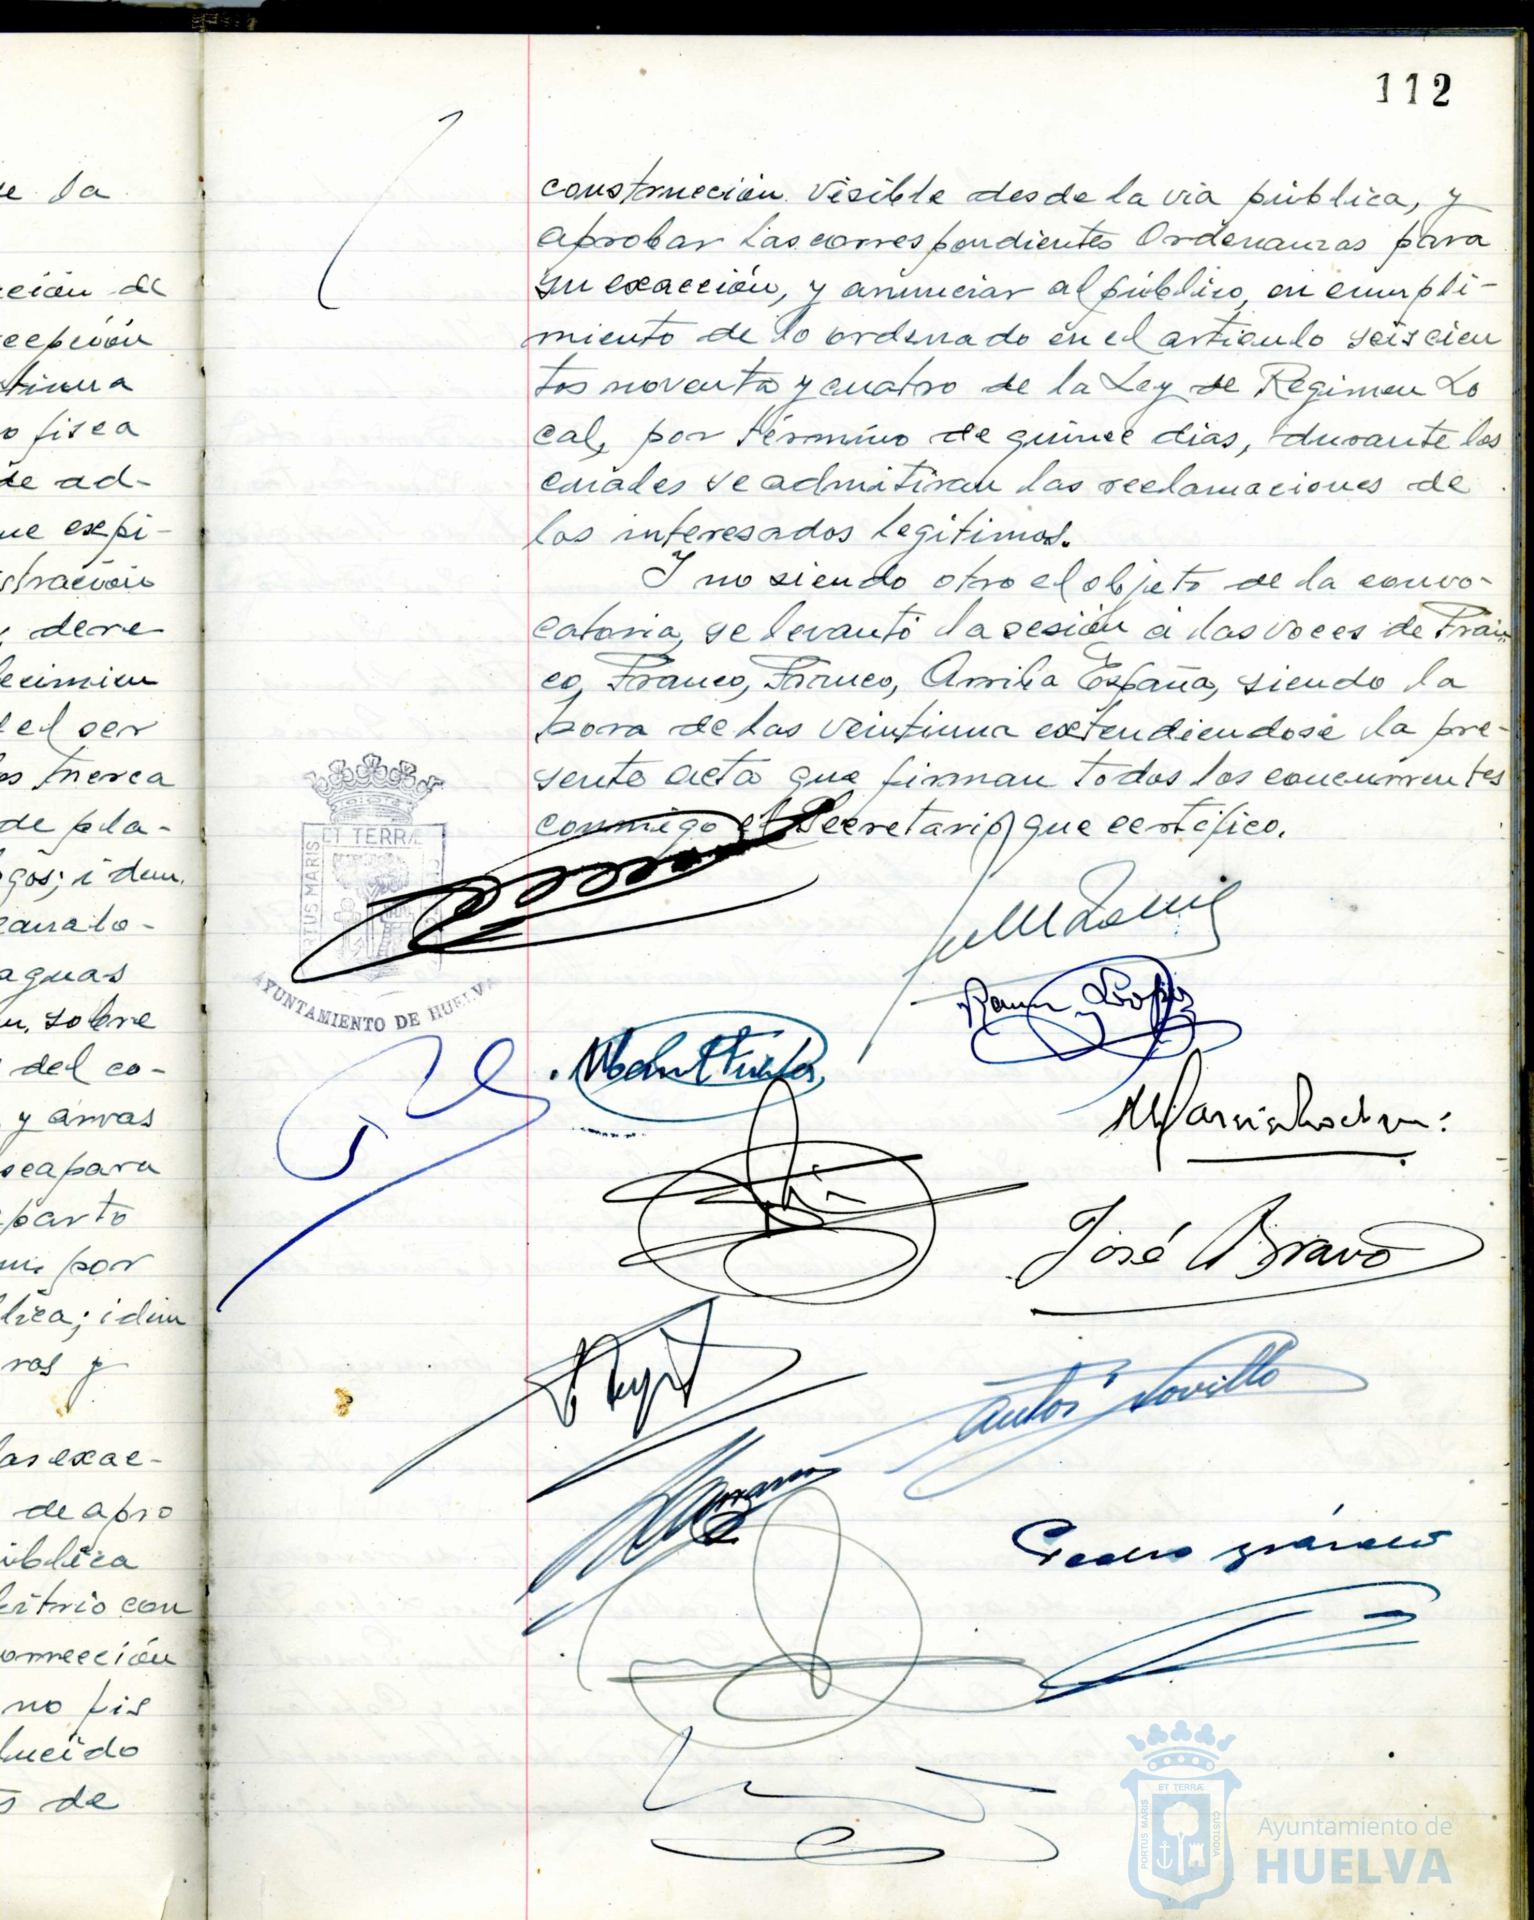 112
construcción visible desde la via pública, y
aprobar las correspondientes Ordenanzas para
su exacción, y anunciar al público, en cumpli-
miento de lo ordenado en el articulo seiscien
tos noventa y cuatro de la Ley de Regimen Lo
cal, por término de quince dias, durante los
cuales se admitiran las reclamaciones de
los interesados legitimos.
Y no siendo otro el objeto de la convo-
catoria, se levantó la sesión a las voces de Fran-
co, Franco, Franco, Arriba España, siendo la
hora de las veintiuna extendiendose la pre-
sente acta que firman todos los concurrentes
conmigo el Secretario, que certifico.
ET TERRÆ
PORTUS MARIS
AYUNTAMIENTO DE HUELVA
Ramon Lopez
José Bravo
de la
cción de
cepción
o fisca
de ad-
ue expi-
stración
y dere
lecimien
el ser
os merca
de pla-
gos; idem
aguas
sobre
del co-
y arvas
parto
por
lica; idem
ras y
las exac-
de apro
ública
bitrio con
no fis
lucido
de
PORTUS MARIS
ET TERRÆ
CUSTODIA
Ayuntamiento de
HUELVA